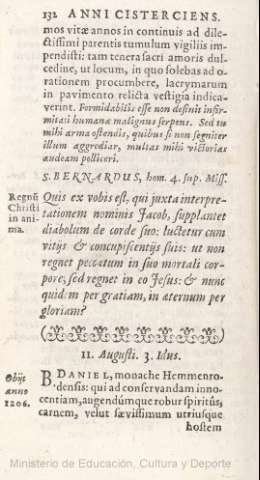 132 ANNI CISTERCIENS.
mos vitæ annos in continuis ad dile-
ctissimi parentis tumulum vigiliis im-
pendisti: tam tenera sacri amoris dul-
cedine, ut locum, in quo solebas ad o-
rationem procumbere, lacrymarum
in pavimento relicta vestigia indica-
verint. Formidabilis esse non desinit infir-
mitati humanæ malignus serpens. Sed tu
mihi arma ostendis, quibus si non segniter
illum aggrediar, multas mihi victorias
audeam polliceri.
S. BERNARDUS, hom. 4. sup. Miss.
Regnũ
Christi
in ani-
ma.
Quis ex vobis est, qui juxta interpre-
tationem nominis Jacob, supplantet
diabolum de corde suo: luctetur cum
vitijs & concupiscentijs suis: ut non
regnet peccatum in suo mortali cor-
pore, sed regnet in eo Jesus: & nunc
quidem per gratiam, in æternum per
gloriam?
11. Augusti. 3. Idus.
Obijt
anno
1206.
B. DANIEL, monache Hemmenro-
densis: qui ad conservandam inno-
centiam, augendúmque robur spiritûs,
carnem, velut sævissimum utriusque
hostem
Ministerio de Educación, Cultura y Deporte